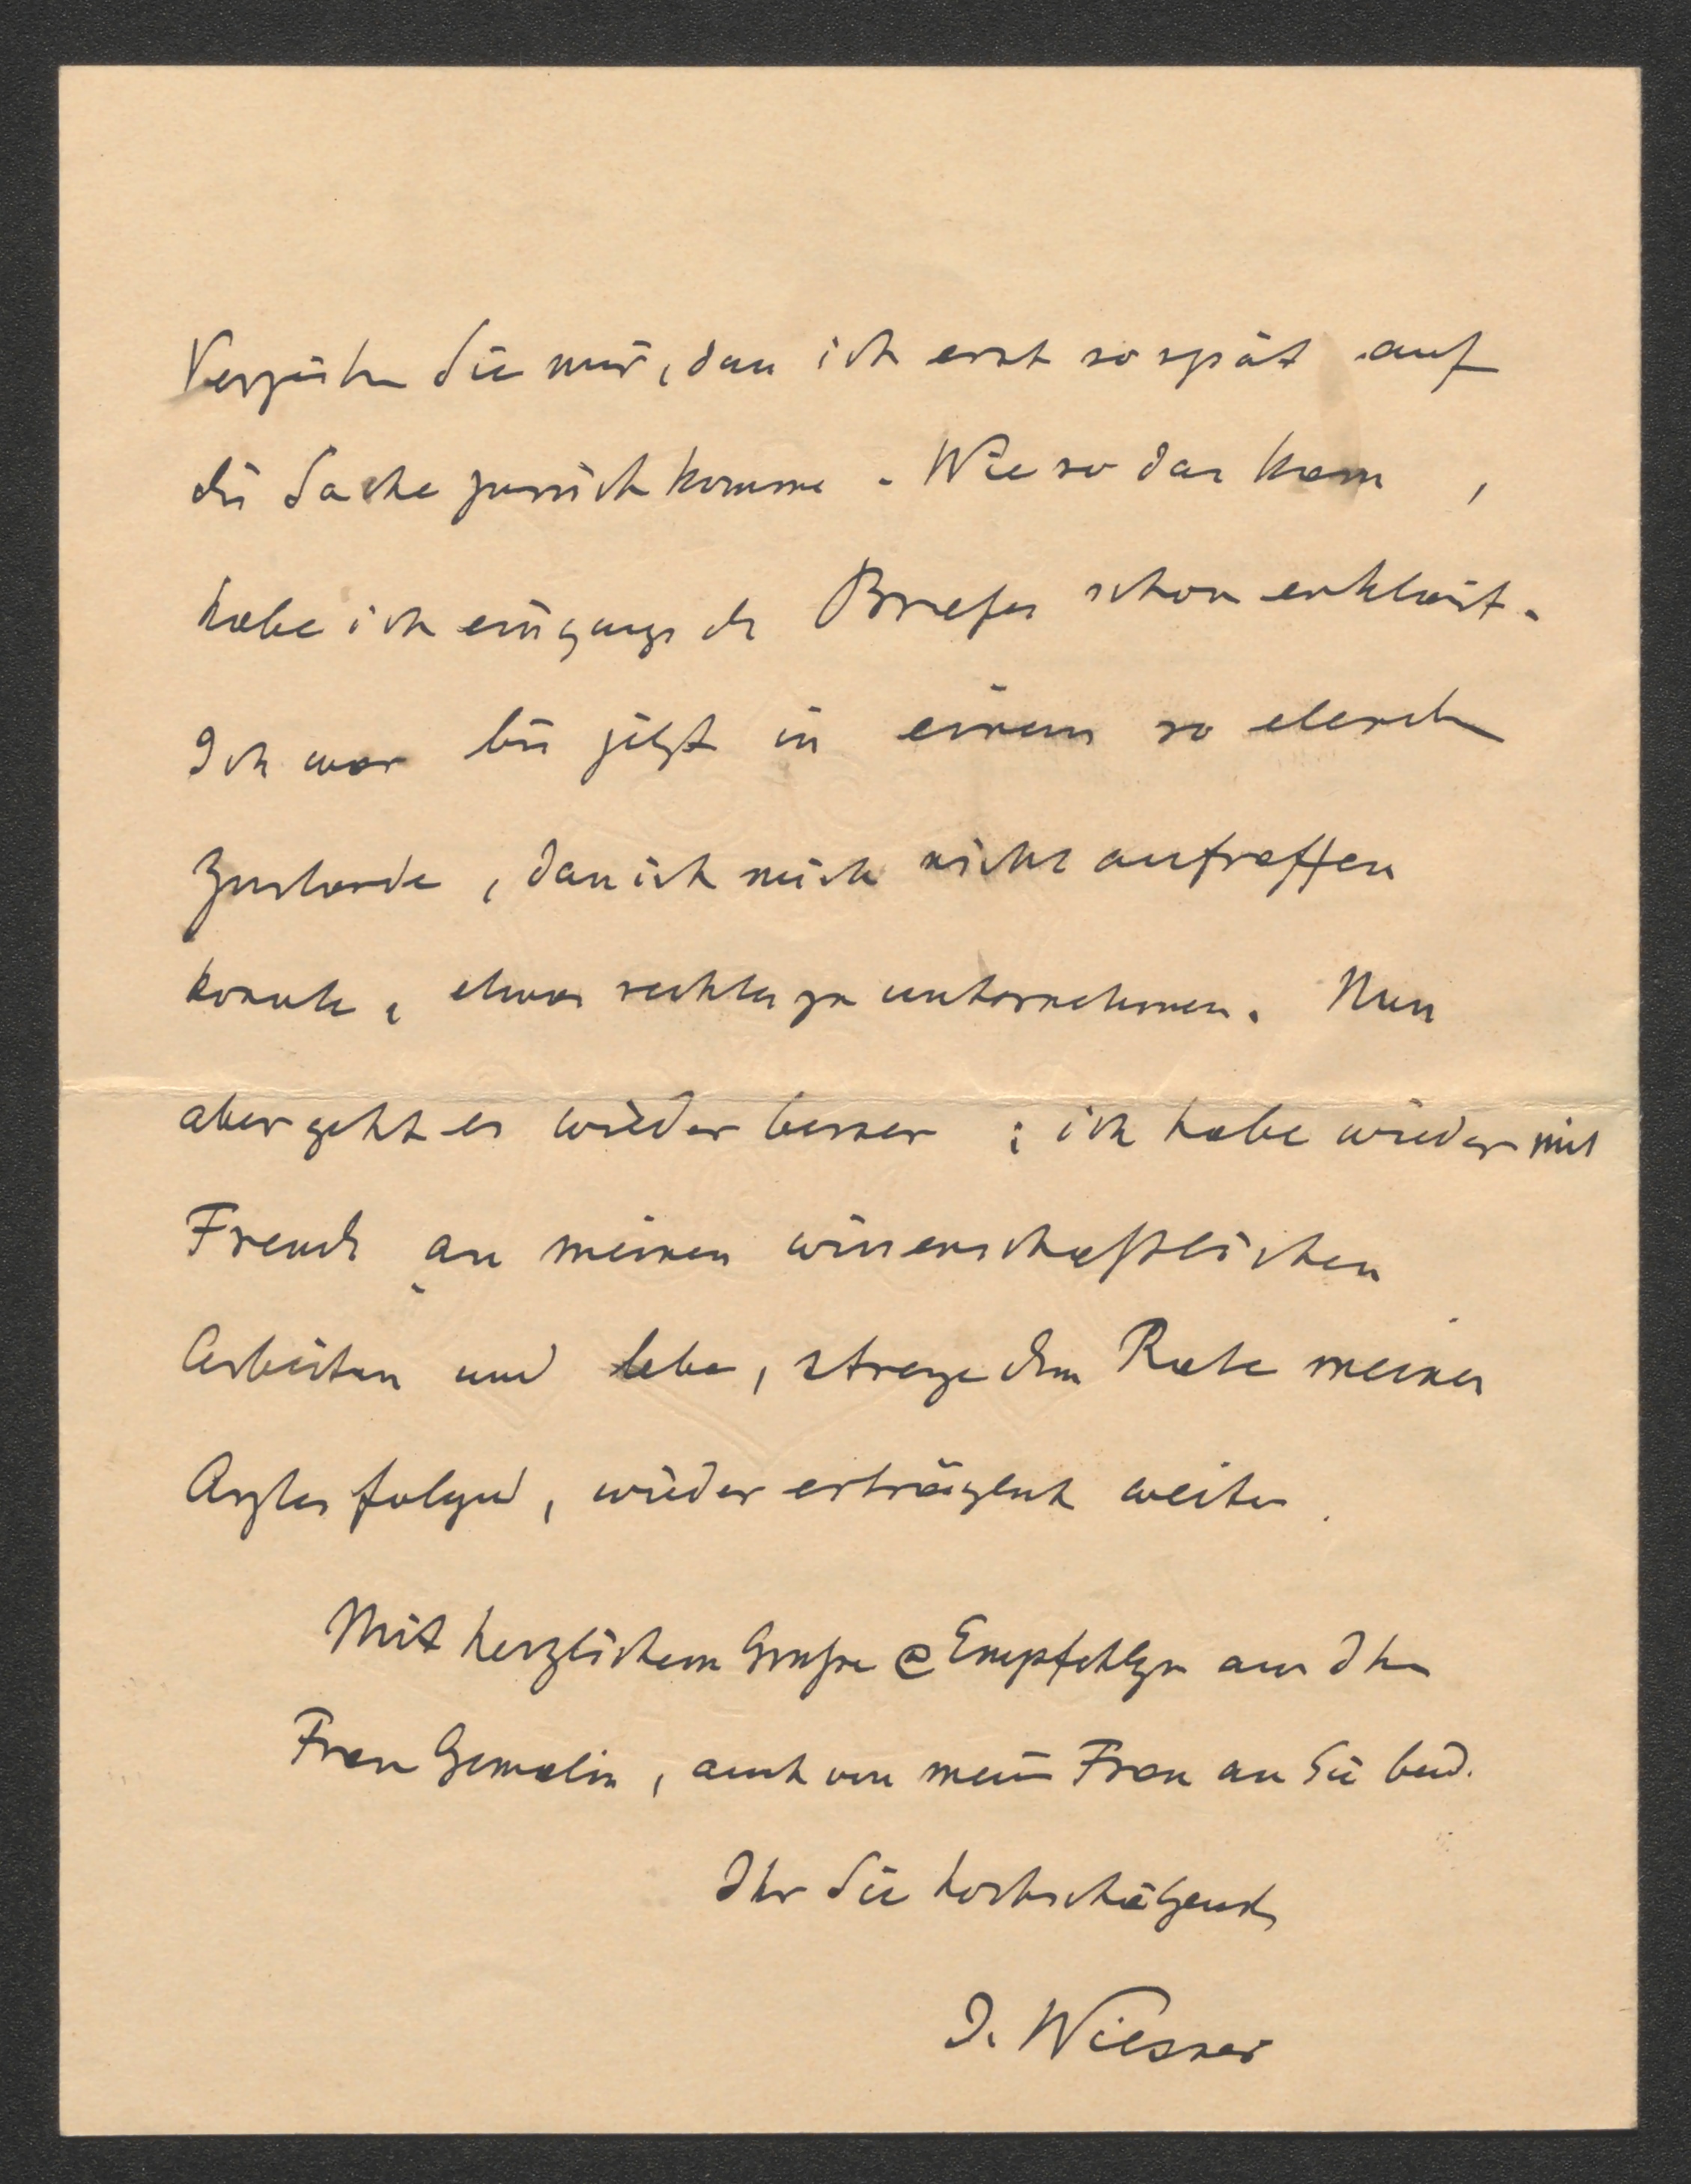 Verzeihen Sie mir, dass ich erst so spät auf
die Sache zurückkomme. Wieso das kam,
habe ich eingangs des Briefes schon erklärt.
Ich war bis jetzt in einem so elenden
Zustande, dass ich mich nicht aufraffen
konnte, etwas rechtes zu unternehmen. Nun
aber geht es wieder besser; ich habe wieder mit
Freude an meinen wissenschaftlichen
Arbeiten und lebe, strenge dem Rate meines
Arztes folgend, wieder erträglich weiter.
Mit herzlichem Grusse & Empfehlgn an Ihre
Frau Gemalin, auch von meiner Frau an Sie beide.
Ihr Sie hochschätzender
J. Wiesner